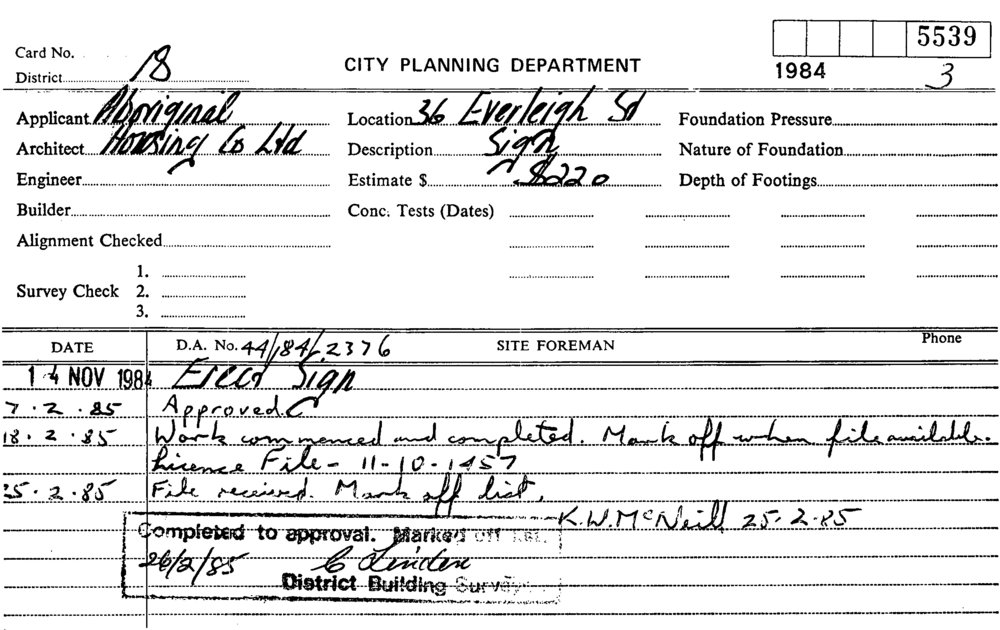 5539
Card No.
District 18
CITY PLANNING DEPARTMENT
1984 3
Applicant Aboriginal Location 36 Everleigh St Foundation Pressure
Architect Housing Co Ltd Description Sign Nature of Foundation
Engineer Estimate $ $220 Depth of Footings
Builder Conc. Tests (Dates)
Alignment Checked
1.
Survey Check 2.
3.
DATE D.A. No. 44/84/2376 SITE FOREMAN Phone
14 NOV 1984 Erect Sign
7.2.85 Approved
18.2.85 Work commenced and completed. Mark off when file available.
Licence File - 11-10-1457
25.2.85 File received. Mark off list.
K.W.McNeill 25-2-85
Completed to approval. Marked off list.
26/2/85 C Linden
District Building Surveyor